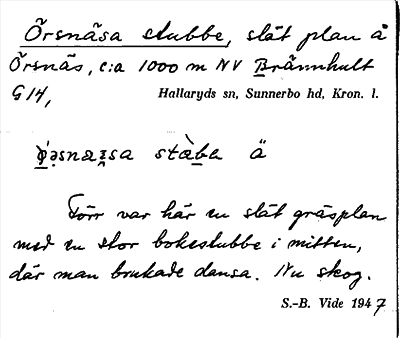 Örsnäsa stubbe, slät plan å
Örsnäs, c:a 1000 m NV Brännhult
G 14, Hallaryds sn, Sunnerbo hd, Kron. l.
stàba ä
Förr var här en slät gräsplan
med en stor bokestubbe i mitten,
där man brukade dansa. Nu skog.
S.-B. Vide 1947